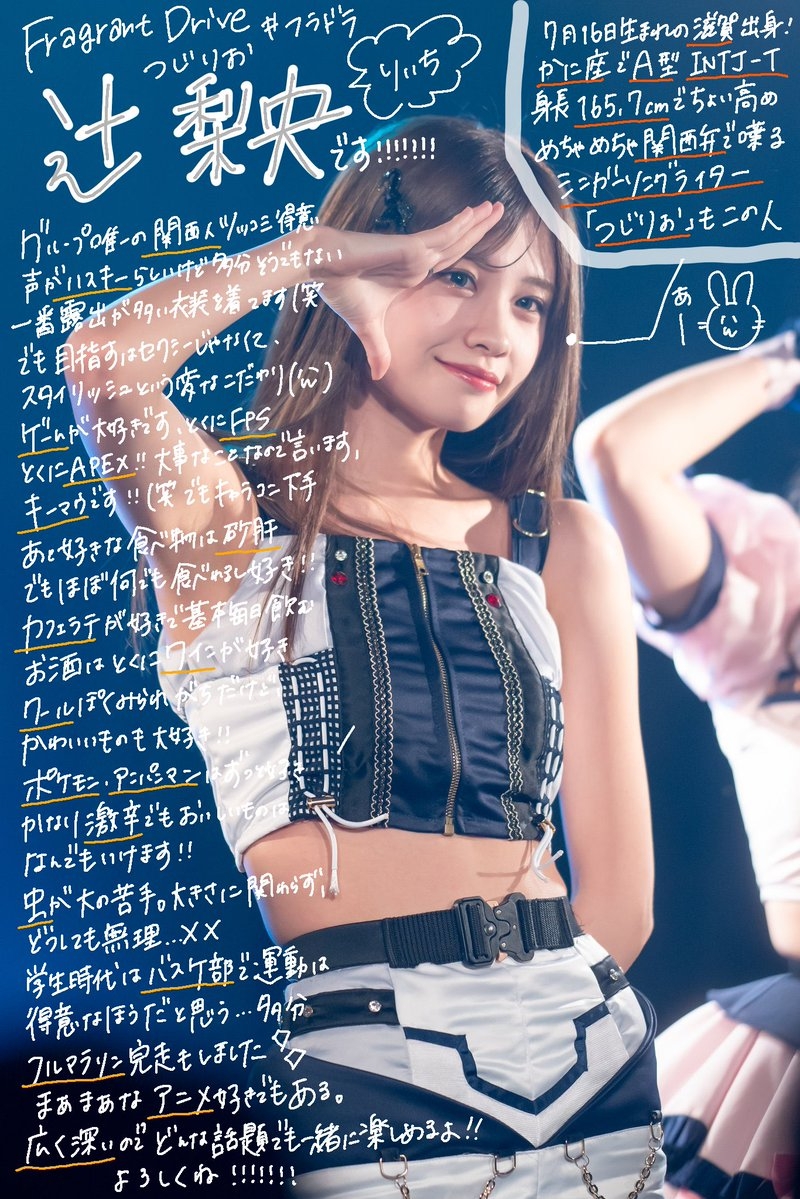 Fragrant Drive #フラドラ
つじりお
辻 梨央です!!!!!!!
りいち
7月16日生まれの滋賀出身!
かに座でA型 INTJ-T
身長165.7cmでちょい高め
めちゃめちゃ関西弁で喋る
シンガーソングライター
「つじりお」もこの人
あー
グループ唯一の関西人ツッコミ得意
声がハスキーらしいけど多分そうでもない
一番露出が多い衣装を着てます(笑
でも目指すはセクシーじゃなくて、
スタイリッシュという変なこだわり
ゲームが大好きです、とくにFPS
とくにAPEX!! 大事なことなので言います、
キーマウです!!(笑 でもキャラコン下手
あと好きな食べ物は砂肝
でもほぼ何でも食べれるし好き!!
カフェラテが好きで基本毎日飲む
お酒はとくにワインが好き
クールぽくみられがちだけど...
かわいいものも大好き!!
ポケモン、アンパンマンはずっと好き
かなり激辛でもおいしいものは...
なんでもいけます!!
虫が大の苦手。大きさに関わらず、
どうしても無理...××
学生時代はバスケ部で運動は
得意なほうだと思う...多分
フルマラソン完走もしました
まあまあなアニメ好きでもある。
広く深いのでどんな話題でも一緒に楽しめるよ!!
よろしくね!!!!!!!